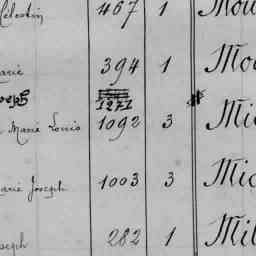 Célestin 467 1 Mou
Marie 394 1 Mo
Joseph 1271
Marie Louis 1092 3 Mic
Marie Joseph 1003 3 Mic
Joseph 282 1 Mil